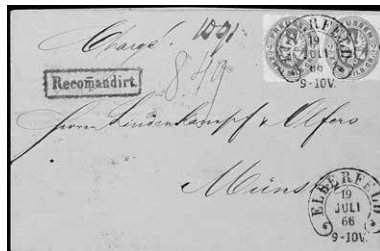 Chargé! 1091
PREUSSEN
ELBERFELD
19
JULI
66
9-10V.
Recomandirt.
Herrn Lindenkampf & Olfers
Münster
ELBERFELD
19
JULI
66
9-10V.